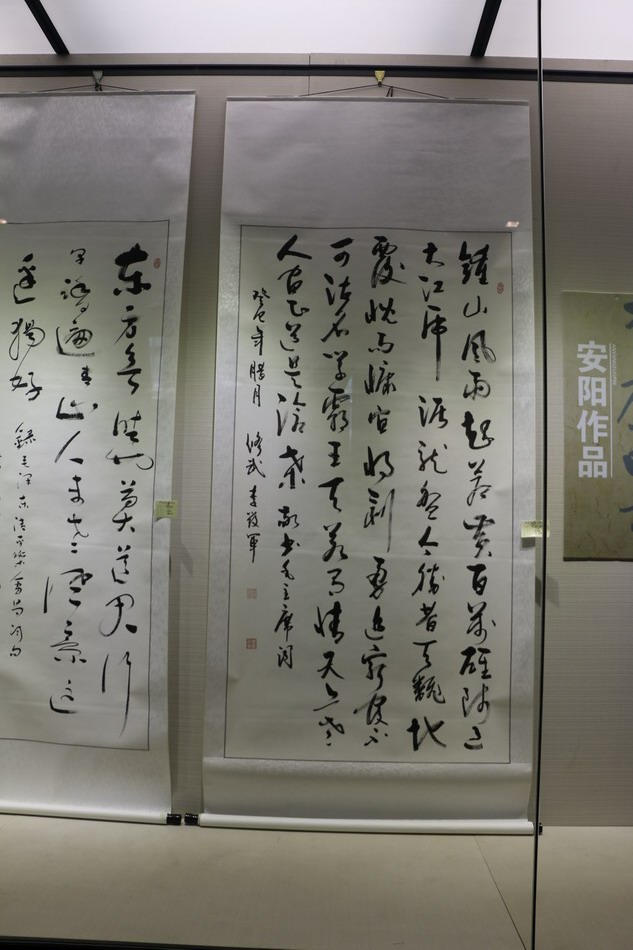 安阳作品
鍾山風雨起苍黄百萬雄师过
大江虎踞龙盘今勝昔天翻地
覆慨而慷宜将剩勇追穷寇不
可沽名学霸王天若有情天亦老
人间正道是沧桑 敬书毛主席词
癸巳年腊月 修武 李 軍
东方欲晓莫道君行
早踏遍青山人未老风景这
边独好
錄毛泽东清平乐會昌词句